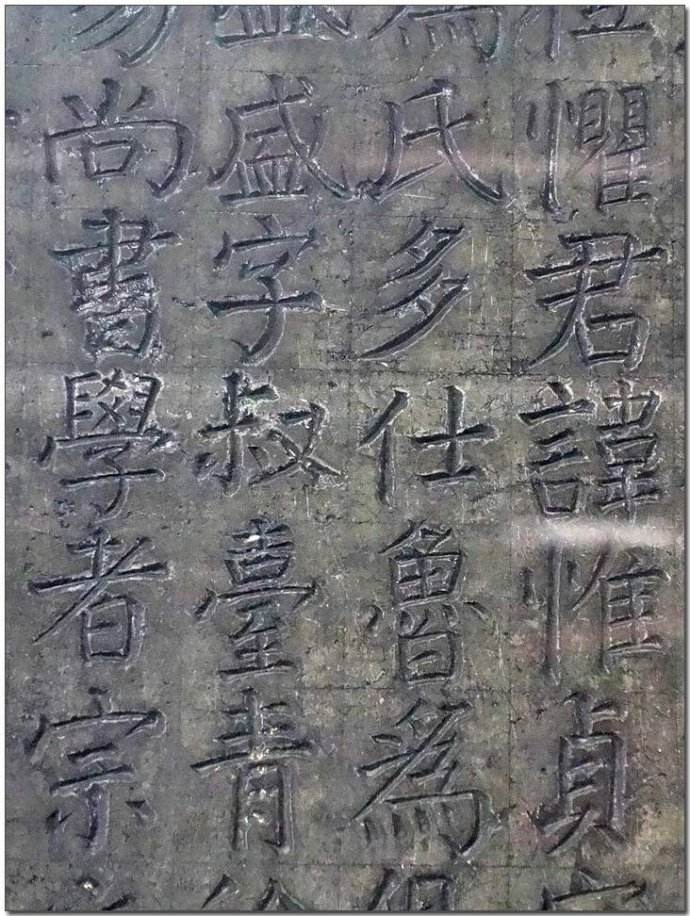 懼君諱惟貞
氏多仕魯爲
盛字叔臺青
尚書學者宗